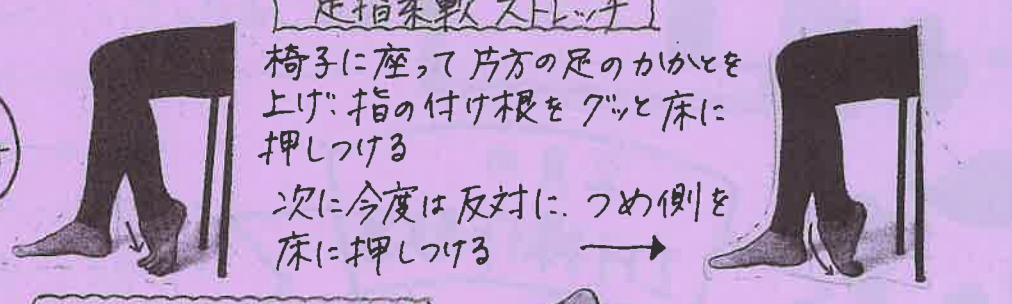 足指柔軟ストレッチ
椅子に座って片方の足のかかとを
上げ、指の付け根をグッと床に
押しつける
次に今度は反対に、つめ側を
床に押しつける →